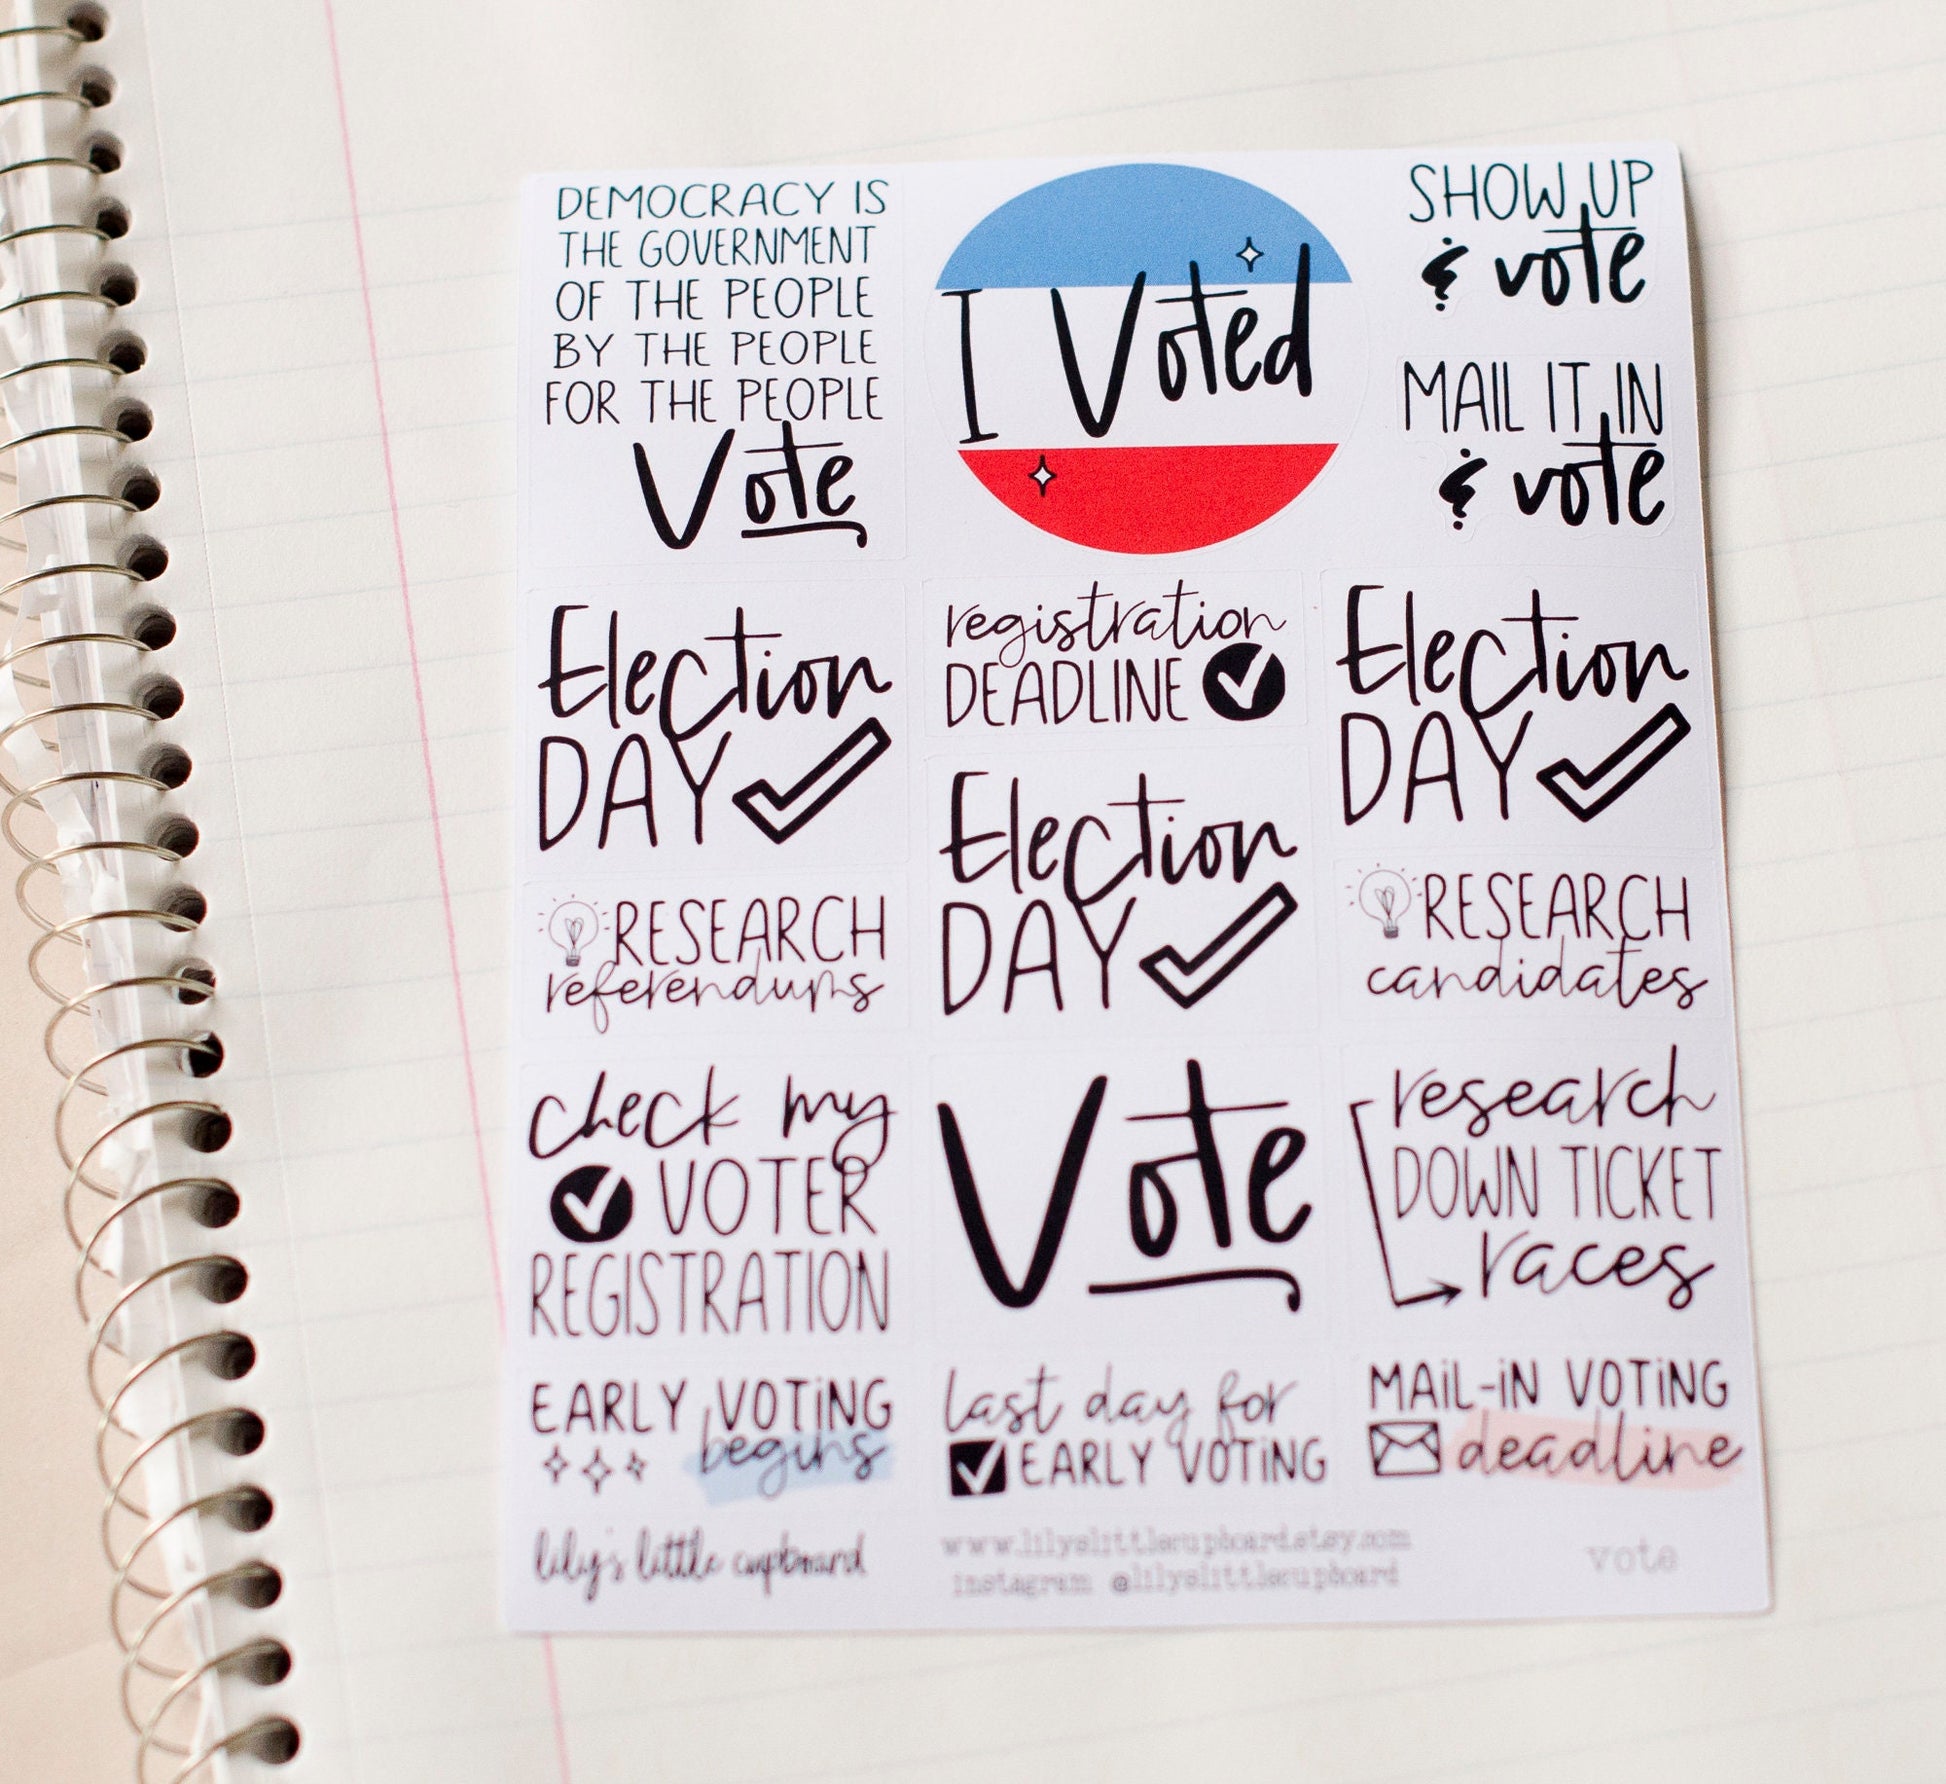 DEMOCRACY IS
THE GOVERNMENT
OF THE PEOPLE
BY THE PEOPLE
FOR THE PEOPLE
Vote
I Voted
SHOW UP
& vote
MAIL IT IN
& vote
Election
DAY
registration
DEADLINE
Election
DAY
Election
DAY
RESEARCH
referendums
RESEARCH
candidates
check my
VOTER
REGISTRATION
Vote
research
DOWN TICKET
races
EARLY VOTiNG
begins
last day for
EARLY VOTiNG
MAiL-iN VOTiNG
deadline
lily's little cupboard
www.lilyslittlecupboard.etsy.com
instagram @lilyslittlecupboard
vote